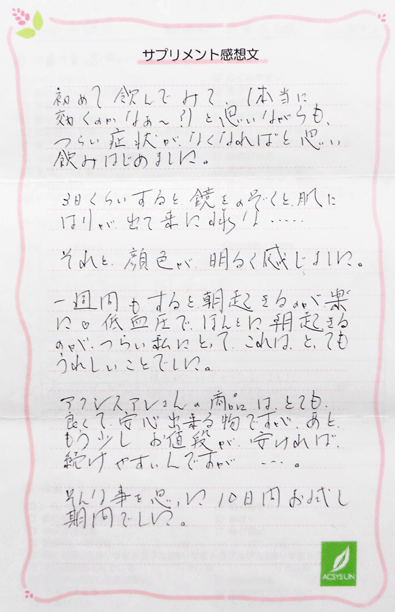 サプリメント感想文
初めて飲んでみて、(本当に
効くのかなあ～？)と思いながらも、
つらい症状が、なくなればと思い
飲みはじめました。
3日くらいすると、鏡をのぞくと、肌に
はりが、出て来た様な……
それと、顔色が、明るく感じました。
一週間もすると、朝起きるのが楽
に♡低血圧で、ほんとに、朝起きる
のが、つらい私にとって、これは、とっても
うれしいことでした。
アクシスアンさんの商品は、とても、
良くて、安心出来る物ですが、あと、
もう少し、お値段が、安ければ、
続けやすいんですが…。
そんな事を思った10日間お試し
期間でした。
ACSYSUN